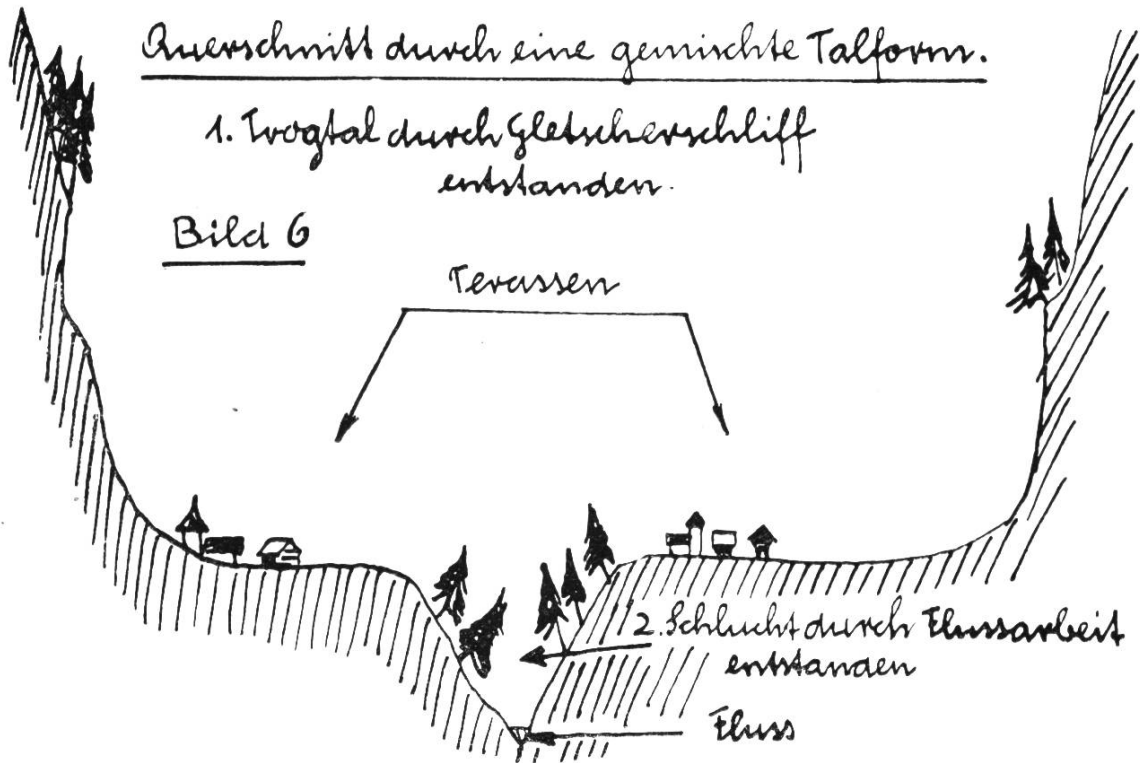 Querschnitt durch eine gemischte Talform.
1. Trogtal durch Gletscherschliff
entstanden.
Bild 6
Terassen
2. Schlucht durch Flussarbeit
entstanden
Fluss